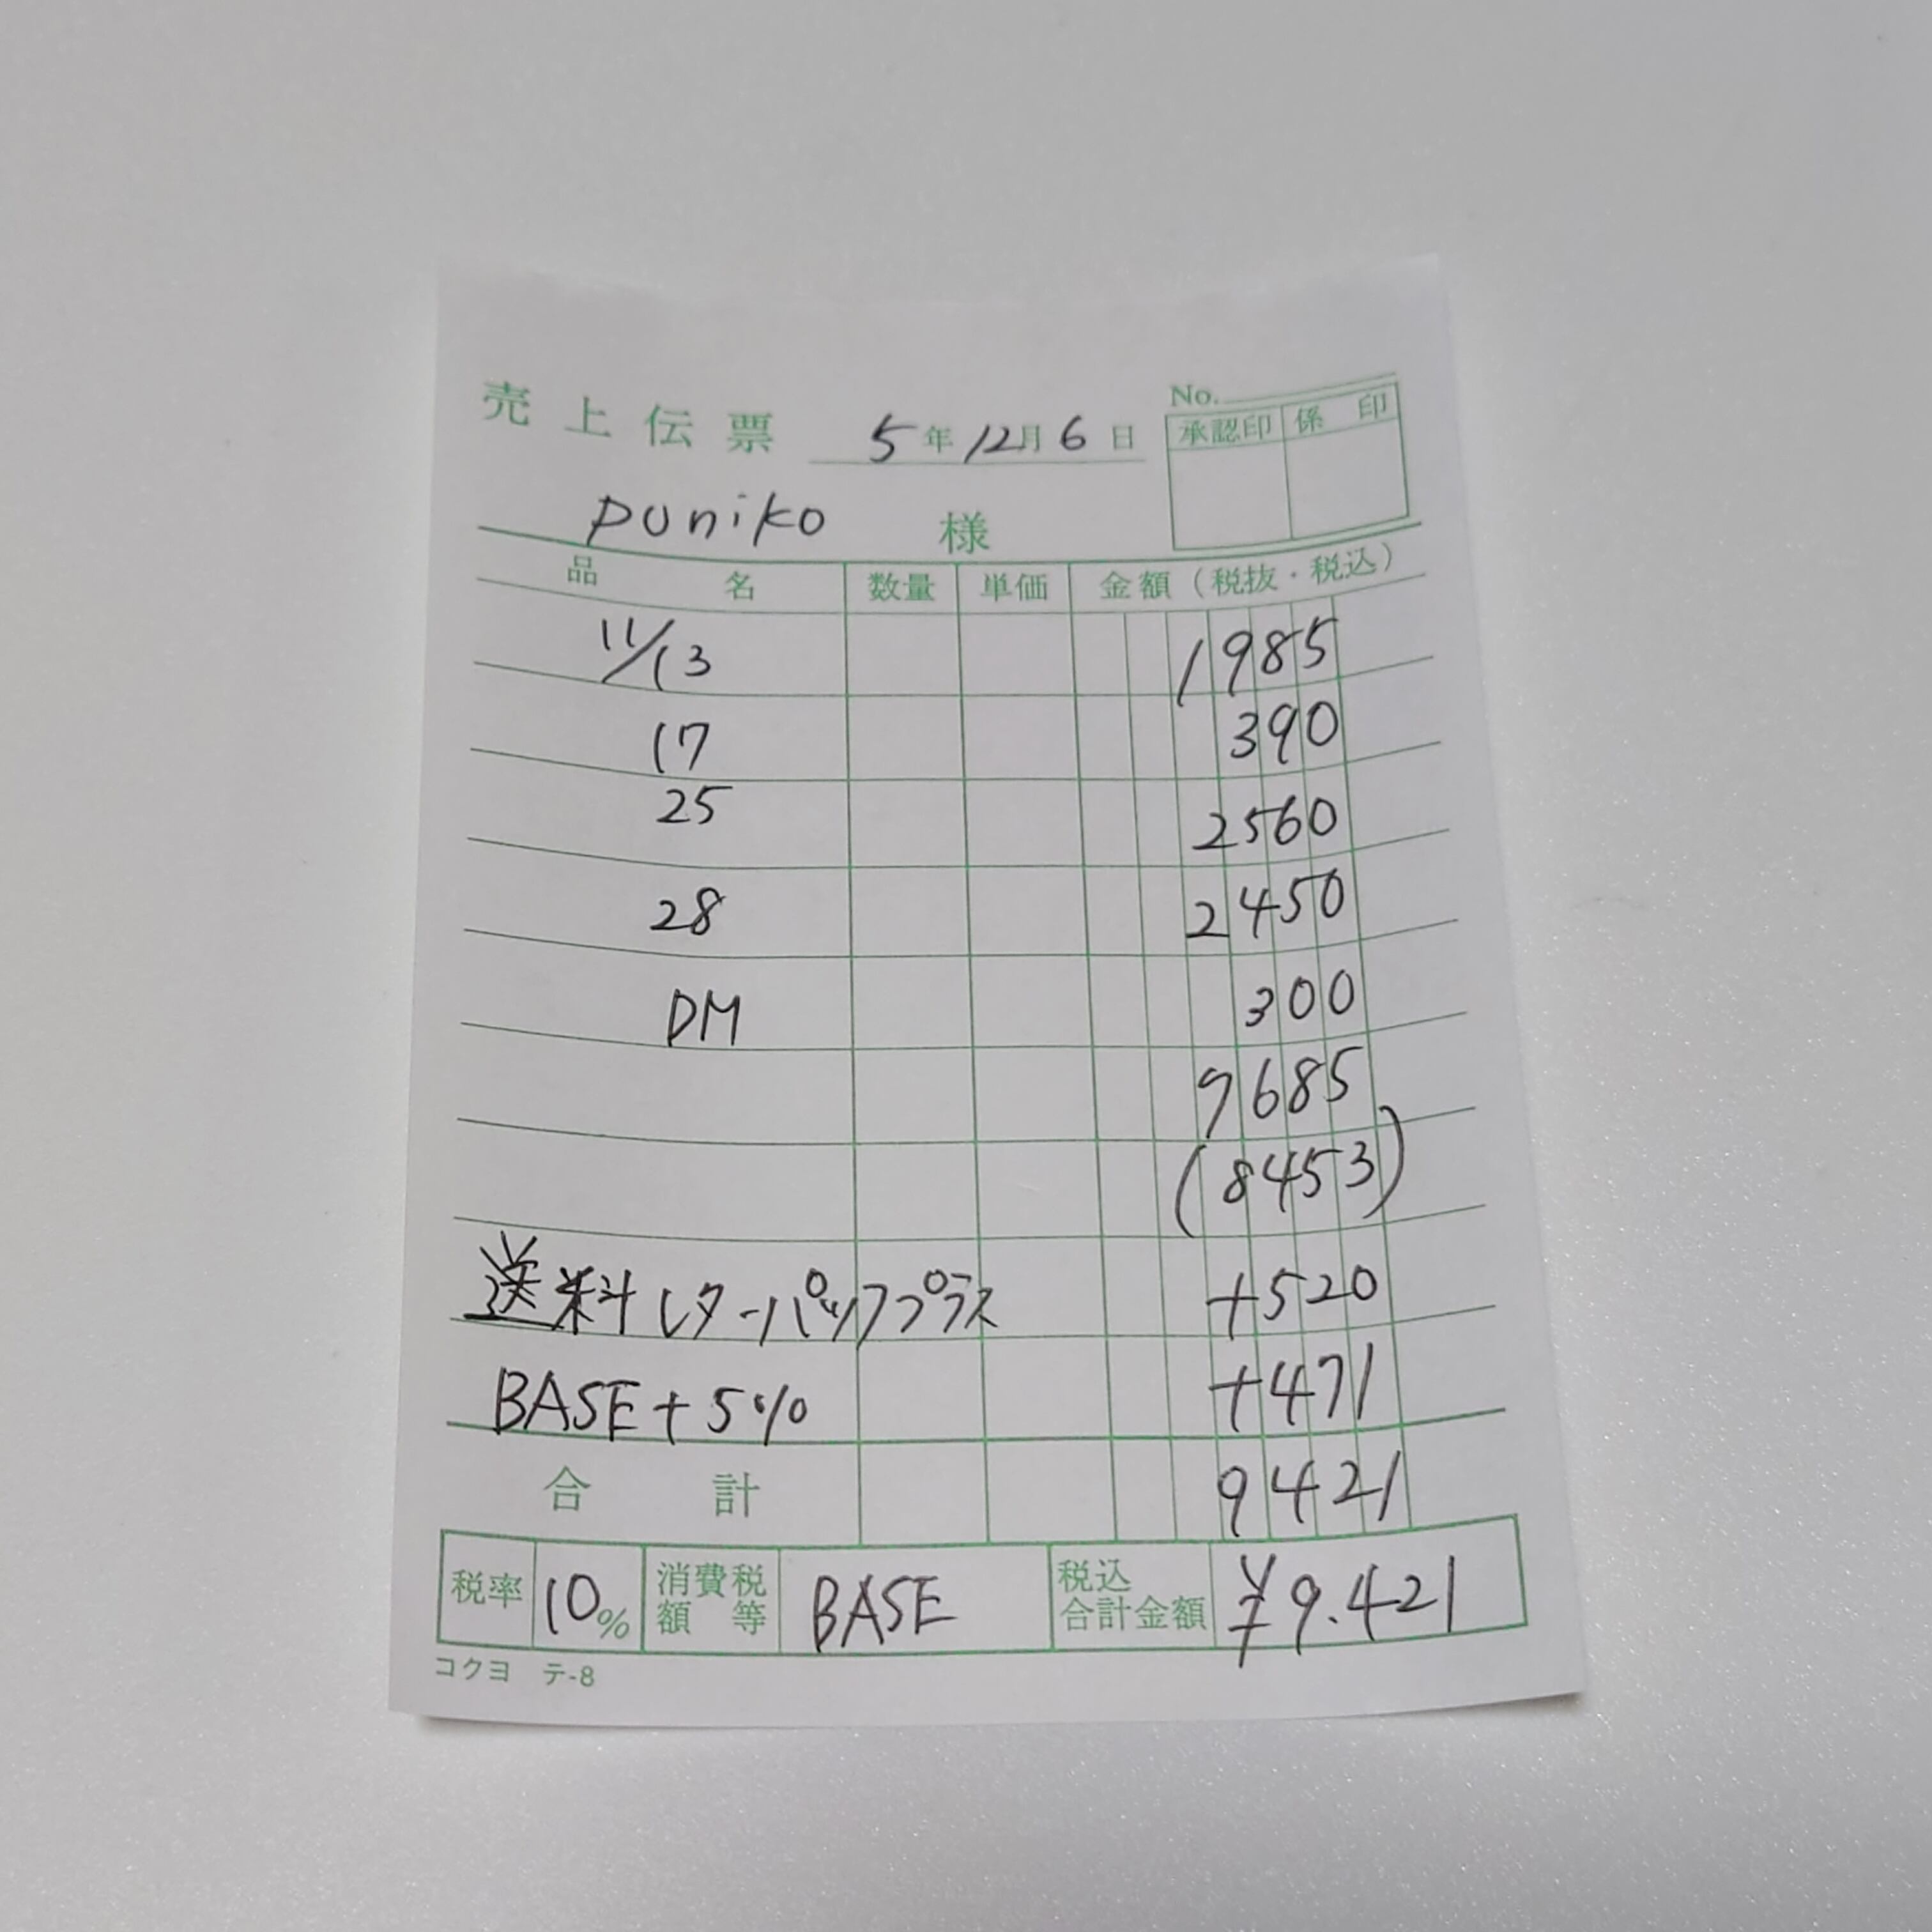 No.
売上伝票 5年12月6日
承認印 係印
puniko 様
品名 数量 単価 金額(税抜・税込)
11/13 1985
17 390
25 2560
28 2450
DM 300
7685
(8453)
送料レターパックプラス +520
BASE+5% +471
合計 9421
税率 10% 消費税額等 BASE 税込合計金額 ¥9.421
コクヨ テ-8